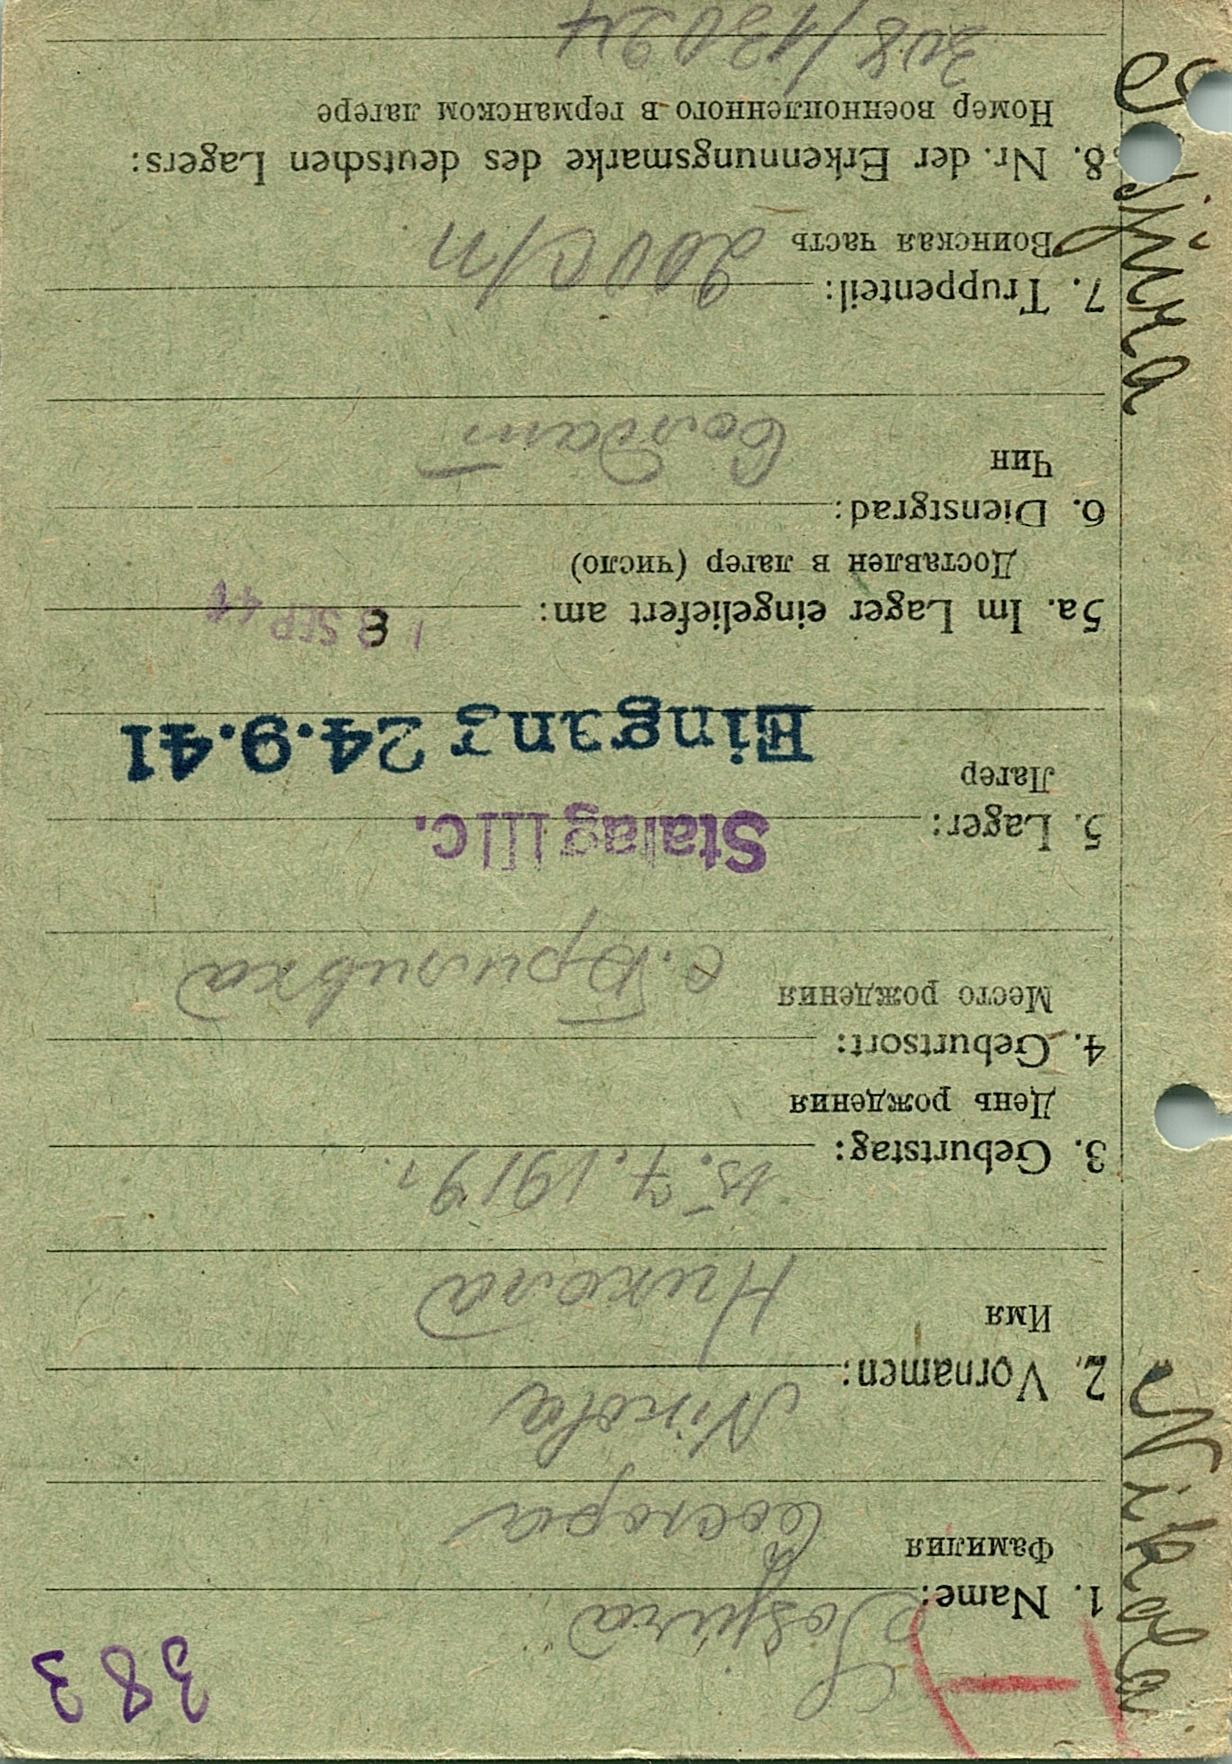 383
1. Name:
Фамилия
2. Vornamen: Nikola
Имя Никола
3. Geburtstag: 15.7.1919 г.
День рождения
4. Geburtsort:
Место рождения
5. Lager: Stalag III C.
Лагер
Eingang 24.9.41
5a. Im Lager eingeliefert am: 18 SEP 41
Доставлен в лагер (число)
6. Dienstgrad:
Чин Солдат
7. Truppenteil: 200 с/п
Воинская часть
8. Nr. der Erkennungsmarke des deutschen Lagers:
Номер военнопленного в германском лагере
Nikola